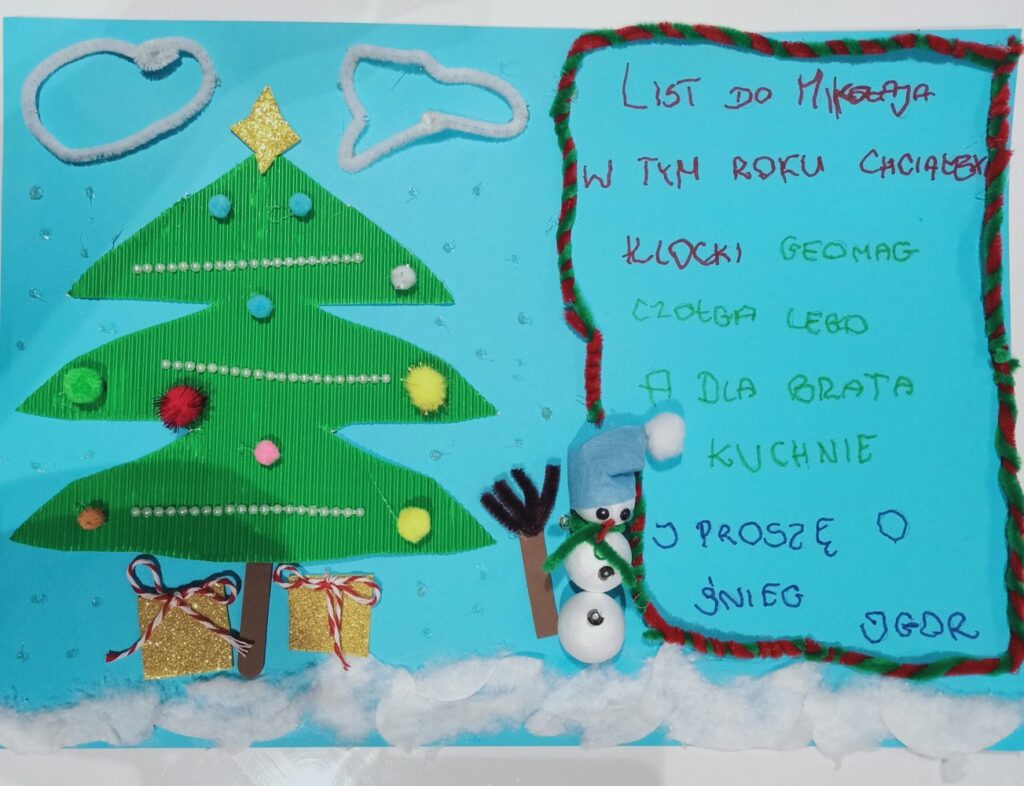 LIST DO MIKOŁAJA
W TYM ROKU CHCIAŁBYM
KLOCKI GEOMAG
CZOŁGA LEGO
A DLA BRATA
KUCHNIE
I PROSZĘ O
ŚNIEG
IGOR